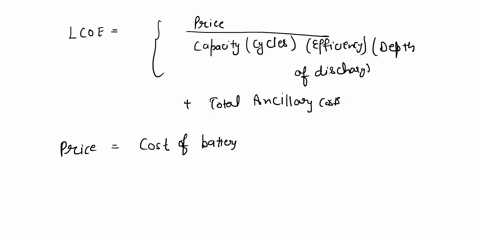 LCOE = { Price
Capacity (cycles) (Efficiency) (Depth
of discharge)
+ Total Ancillary cost
Price = Cost of battery